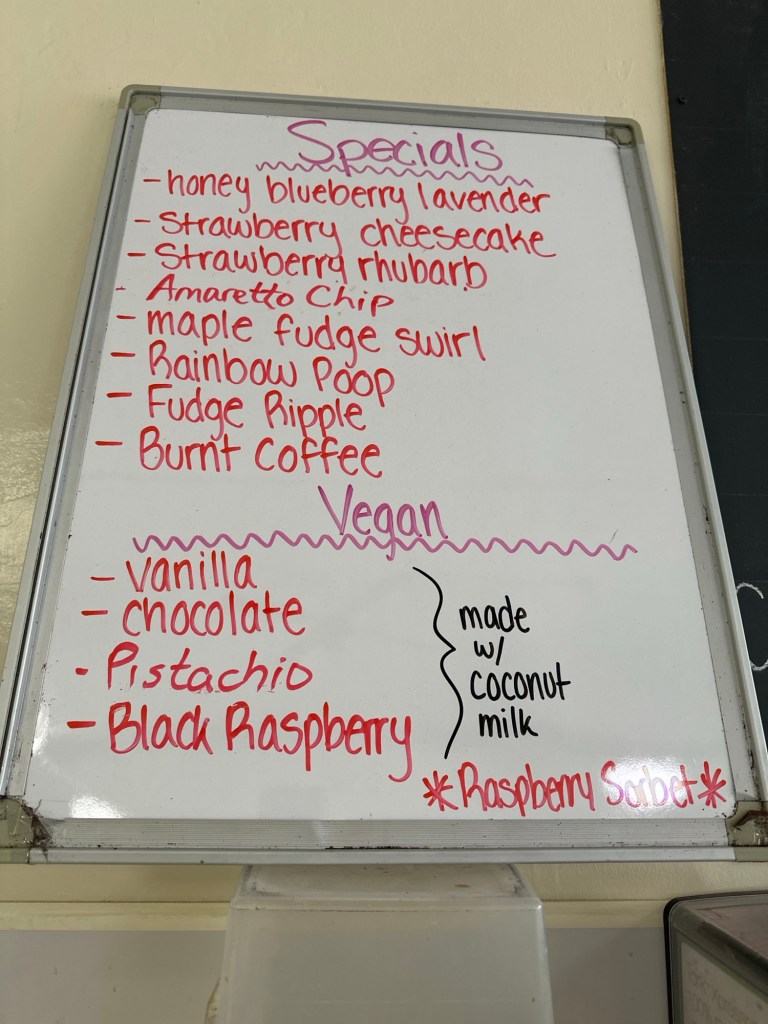 Specials
- honey blueberry lavender
- Strawberry cheesecake
- Strawberry rhubarb
- Amaretto Chip
- maple fudge swirl
- Rainbow Poop
- Fudge Ripple
- Burnt Coffee
Vegan
- Vanilla
- chocolate
- Pistachio
- Black Raspberry
made
w/
coconut
milk
*Raspberry Sorbet*